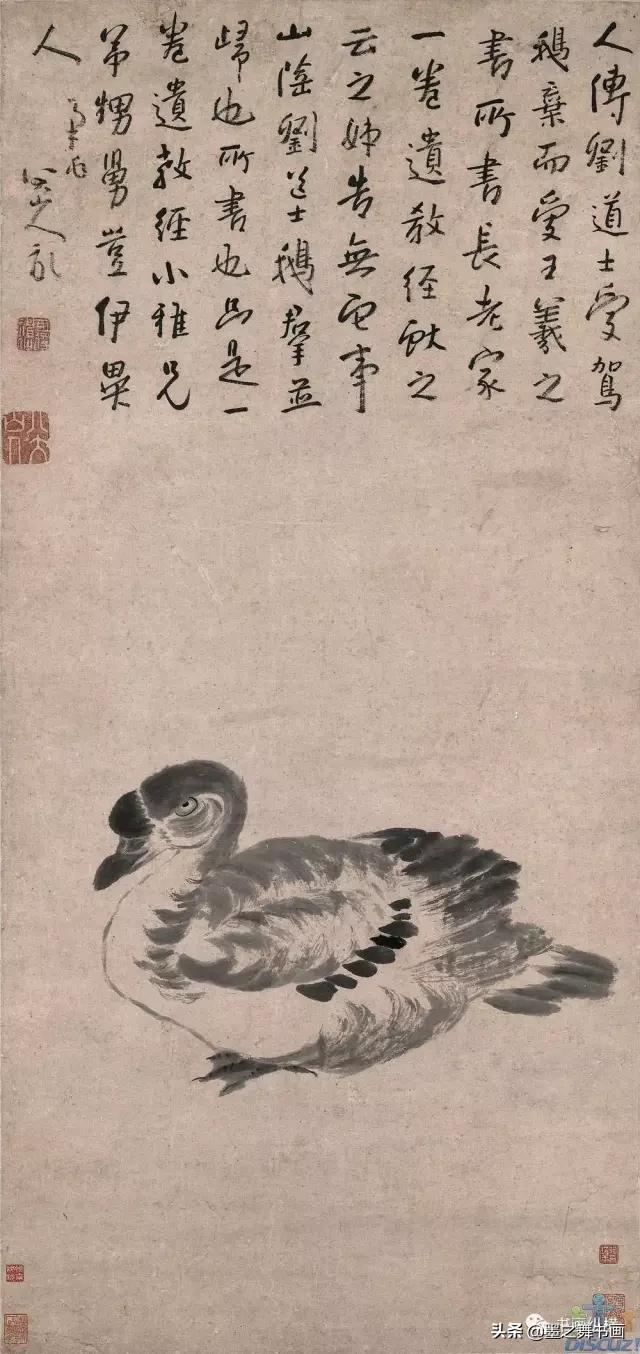 人傳劉道士愛駕
鵝棄而愛王羲之
書所書長老家
一卷遺教經之
云之姊告無它事
山陰劉道士鵝羣並
歸也所書也只是一
卷遺教經小雅兄
弟甥舅豈伊異
人
八大山人
书画纵横
头条 @墨之舞书画
DISCUZ!